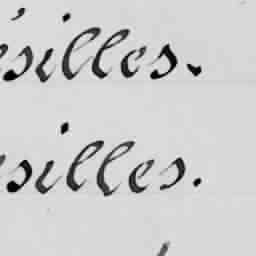 ésilles.
esilles.